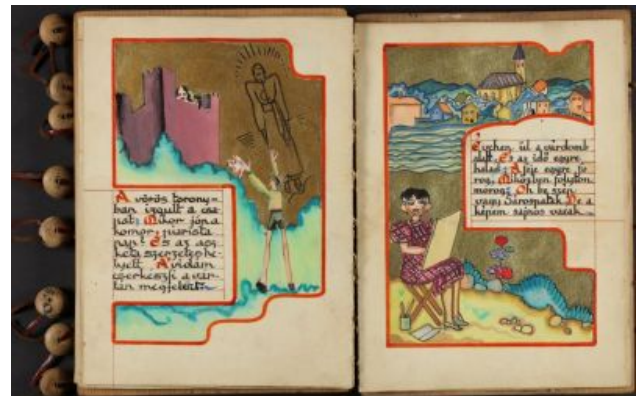 A vörös torony=
ban izgult a csa
pat: Mikor jön a
piarista
pap? És az
szerzetes he-
lyett, A vidám
cserkészfi a vár-
tán megjelent.
ül a várdomb
alatt, És az idő egyre
halad: A feje egyre fo
rog, Miközben folyton
morog: Oh be szép
vagy Sárospatak De a
képem sajnos vacak